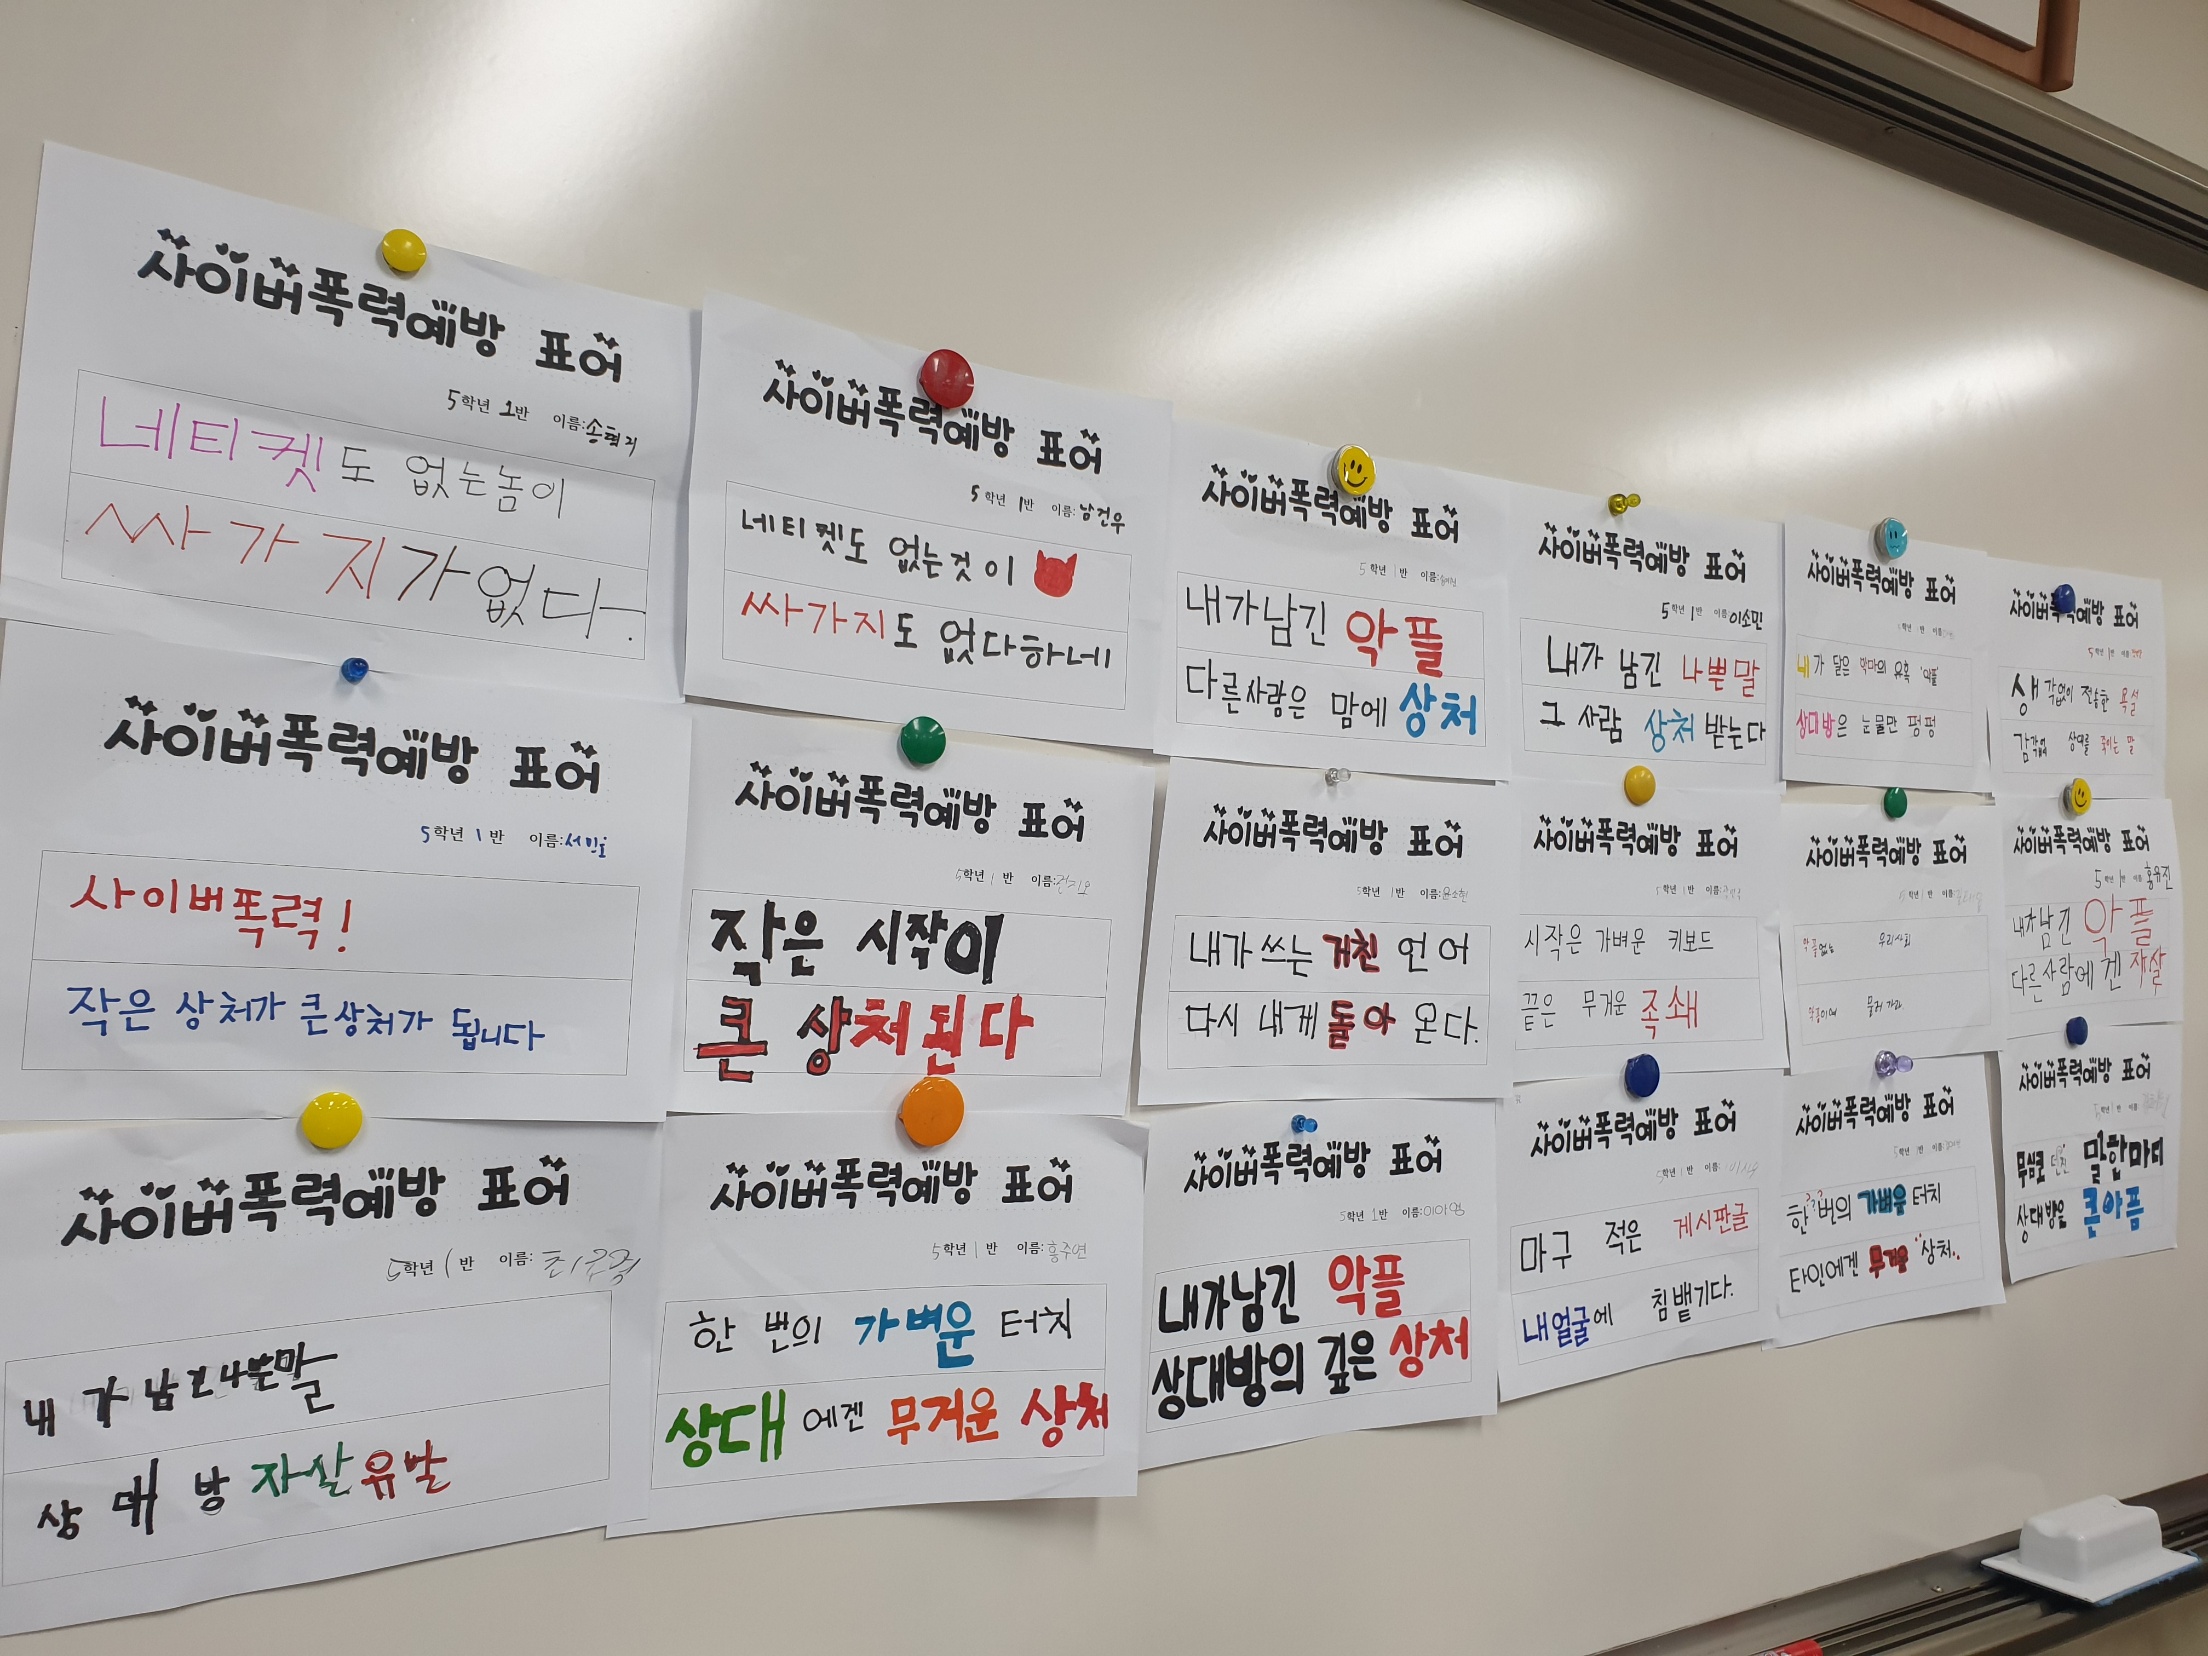 사이버폭력예방 표어
5학년 1반 이름:송현지
네티켓도 없는놈이
싸가지가없다.
사이버폭력예방 표어
5학년 1반 이름:남건우
네티켓도 없는것이
싸가지도 없다하네
사이버폭력예방 표어
5학년 1반 이름:
내가남긴 악플
다른사람은 맘에 상처
사이버폭력예방 표어
5학년 1반 이름:이소민
내가 남긴 나쁜말
그 사람 상처 받는다
사이버폭력예방 표어
학년 반 이름:
내가 달은 악마의 유혹 '악플'
상대방은 눈물만 펑펑
사이버폭력예방 표어
5학년 1반 이름:
생각없이 전송한 욕설
감각없이 상대를 죽이는 말
사이버폭력예방 표어
5학년 1반 이름:서민호
사이버폭력!
작은 상처가 큰상처가 됩니다
사이버폭력예방 표어
5학년 1반 이름:전지오
작은 시작이
큰 상처된다
사이버폭력예방 표어
5학년 1반 이름:윤소현
내가 쓰는 거친 언어
다시 내게 돌아 온다.
사이버폭력예방 표어
5학년 1반 이름:
시작은 가벼운 키보드
끝은 무거운 족쇄
사이버폭력예방 표어
학년 반 이름:
악플없는 우리사회
악플이여 물러가라
사이버폭력예방 표어
5학년 1반 이름:홍유진
내가남긴 악플
다른사람에겐 자살
사이버폭력예방 표어
5학년 1반 이름:
내가남긴나쁜말
상대방 자살유발
사이버폭력예방 표어
5학년 1반 이름:홍주연
한 번의 가벼운 터치
상대에겐 무거운 상처
사이버폭력예방 표어
5학년 1반 이름:이아영
내가남긴 악플
상대방의 깊은 상처
사이버폭력예방 표어
5학년 1반 이름:
마구 적은 게시판글
내얼굴에 침뱉기다.
사이버폭력예방 표어
5학년 1반 이름:
한???번의 가벼운 터치
타인에겐 무거운 상처..
사이버폭력예방 표어
5학년 1반 이름:
무심코 던진 말한마디
상대방은 큰아픔